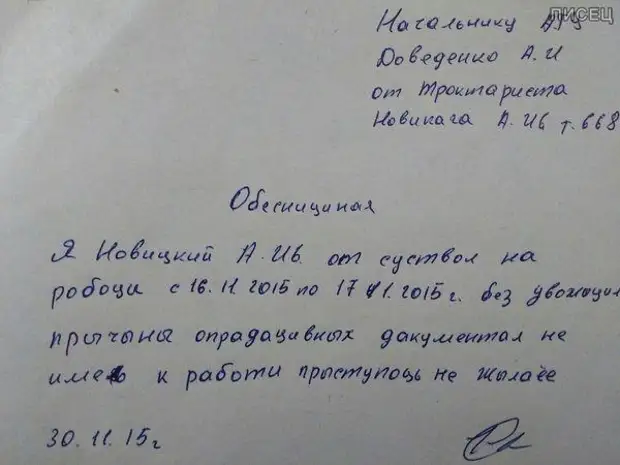 ПИСЕЦ
Начальнику АРЦ
Доведенко А.И
от трактариста
Новикага А.Ив т.668
Обеснициная
Я Новицкий А.Ив. от суствол на
робоци с 16.11.2015 по 17.11.2015г. без увожицил
прычыны опрадацивных дакументал не
имев к работи прыступоць не жылаее
30.11.15г